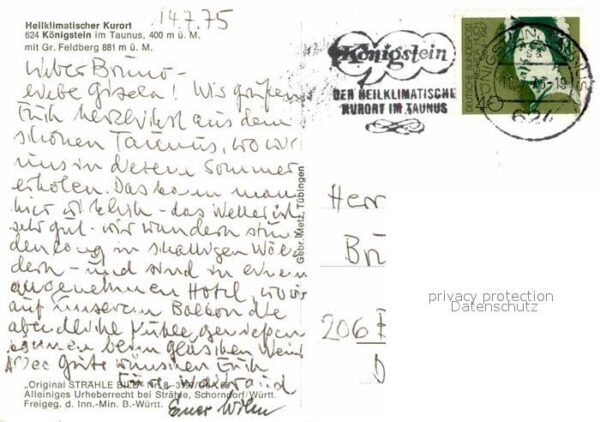 14.7.75
Heilklimatischer Kurort
624 Königstein im Taunus, 400 m ü. M.
mit Gr. Feldberg 881 m ü. M.
Lieber Bruno -
liebe Gisela! Wir grüßen
Euch herzlichst aus dem
schönen Taunus, wo wir
uns in diesem Sommer
erholen. Das kann man
hier wirklich - das Wetter ist
sehr gut - wir wandern stun-
denlang in schattigen Wäl-
dern - und sind in einem
angenehmen Hotel, wo wir
auf unserem Balkon die
abendliche Kühle genießen
können beim Gläschen Wein
Alles Gute wünschen Euch
Eure
Euer
"Original STRÄHLE BILD" Nr. 8
Alleiniges Urheberrecht bei Strähle, Schorndorf/Württ.
Freigeg. d. Inn.-Min. B.-Württ.
Gebr. Metz, Tübingen
Königstein
DER HEILKLIMATISCHE
KURORT IM TAUNUS
DEUTSCHE BUNDESPOST
40
624
Herr
Br
206
privacy protection
Datenschutz